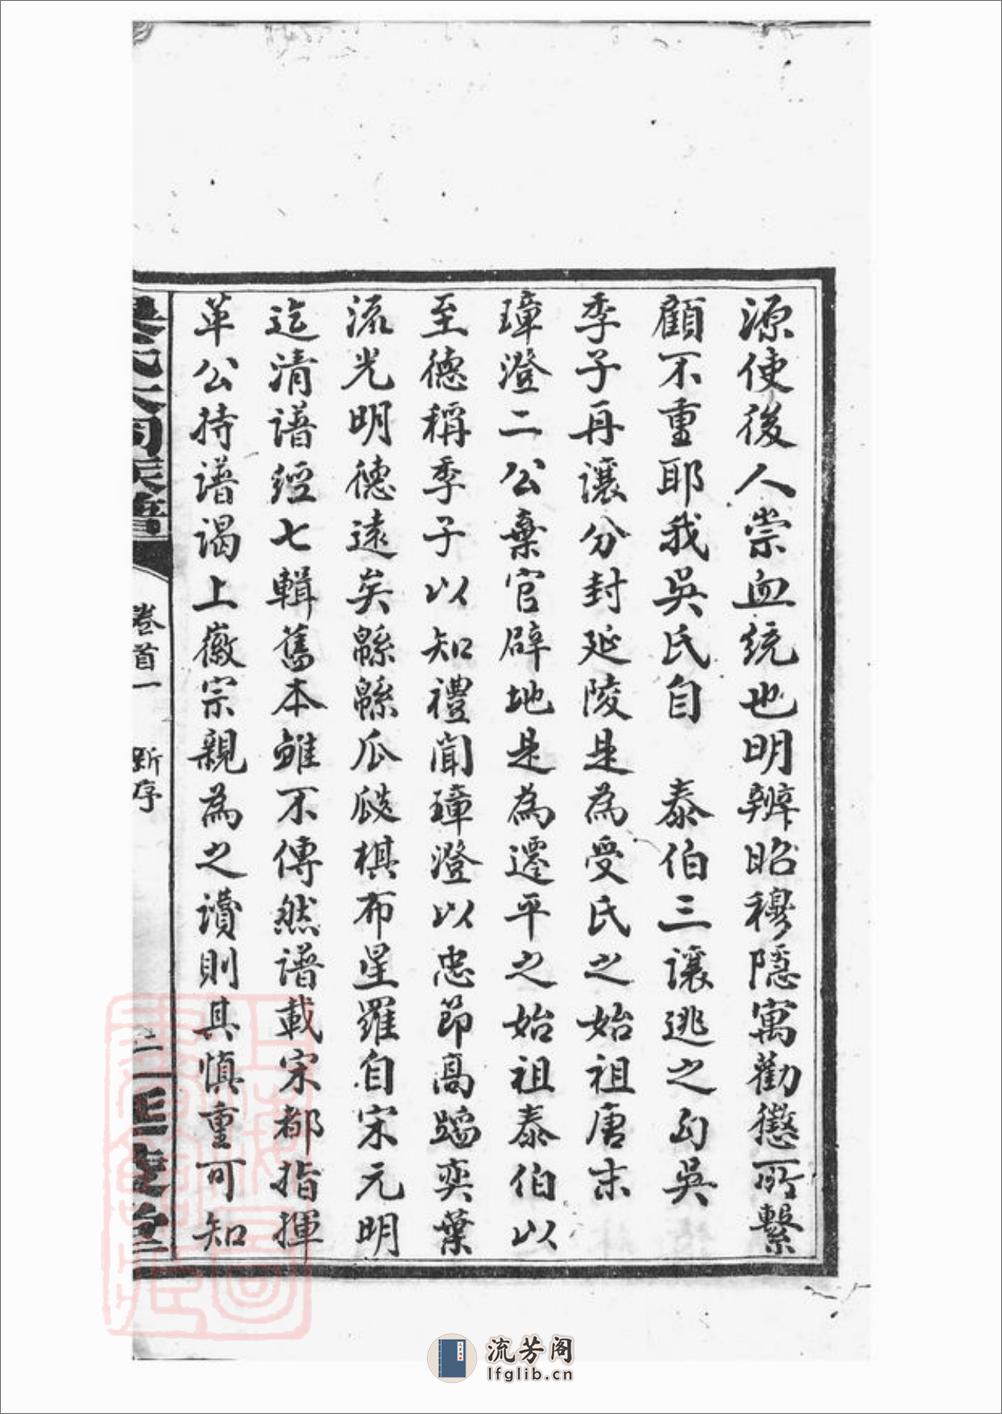 源使後人崇血統也明辨昭穆隱寓勸懲所繫
顧不重耶我吳氏自　泰伯三讓逃之勾吳
季子再讓分封延陵是為受氏之始祖唐末
璋澄二公棄官辟地是為遷平之始祖泰伯以
至德稱季子以知禮聞璋澄以忠節高蹈奕葉
流光明德遠矣緜緜瓜瓞棋布星羅自宋元明
迄清譜經七輯舊本雖不傳然譜載宋都指揮
革公持譜謁上徽宗親為之讀則其慎重可知
卷首一　新序
二
流芳阁
lfglib.cn